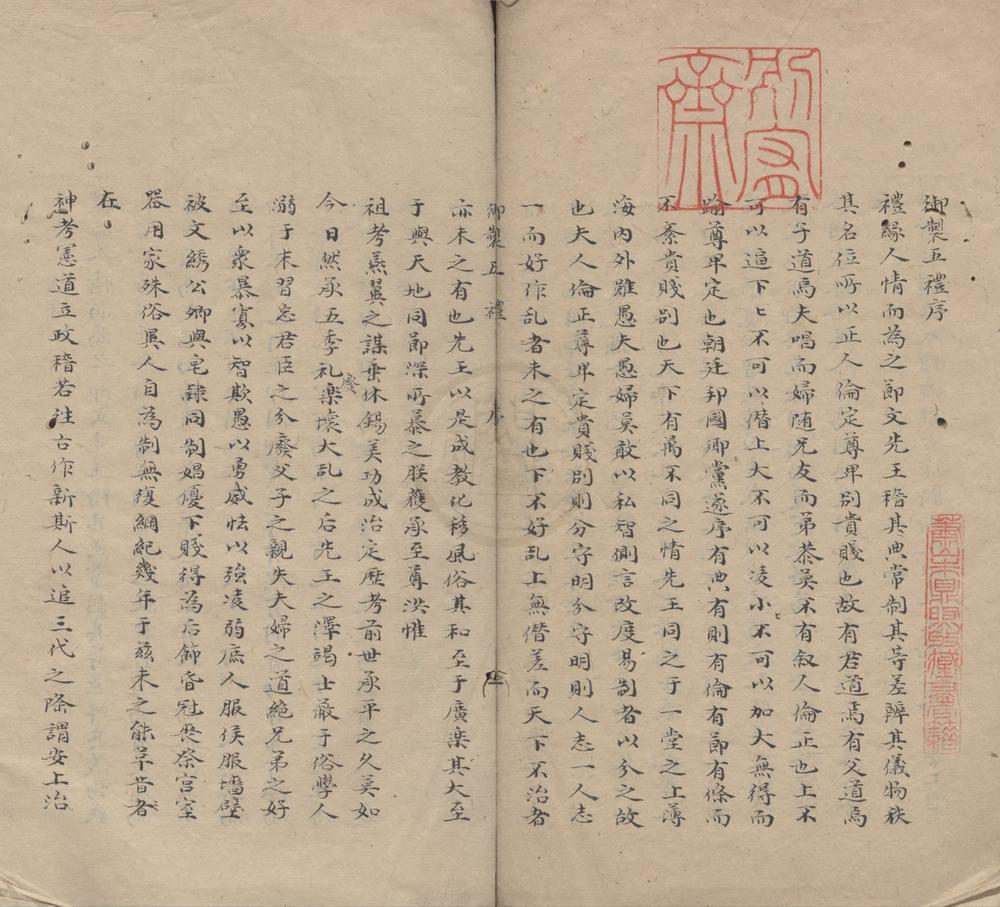 御製五禮序
禮緣人情而為之節文先王稽其典常制其等差辨其儀物秩
其名位所以正人倫定尊卑別貴賤也故有君道焉有父道焉
有子道焉夫唱而婦随兄友而弟恭莫不有叙人倫正也上不
可以逼下丶不可以僭上大不可以凌小丶不可以加大無得而
踰尊卑定也朝廷邦國鄉黨遂序有典有則有倫有節有條而
不紊貴賤別也天下有萬不同之情先王同之于一堂之上薄
海內外雖愚夫愚婦莫敢以私智側言改度易制者以分之故
也夫人倫正尊卑定貴賤別則分守明分守明則人志一人志
一而好作乱者未之有也下不好乱上無僭差而天下不治者
御製五禮 序 一
亦未之有也先王以是成教化移風俗其和至于廣楽其大至
于與天地同節深所慕之朕獲承至尊洪惟
祖考燕翼之謀垂休錫羙功成治定歴考前世承平之久莫如
今日然承五季礼楽廢壞大乱之后先王之澤竭士蔽于俗學人
溺于末習忘君臣之分廢父子之親失夫婦之道絶兄弟之好
至以衆暴寡以智欺愚以勇威怯以強凌弱庶人服侯服墻壁
被文綉公卿與皂隷同制娼優下賤得為后飾昏冠喪祭宮室
器用家殊俗異人自為制無復綱紀幾年于兹未之能革昔者
在
神考憲道立政稽若往古作新斯人以追三代之隆謂安上治